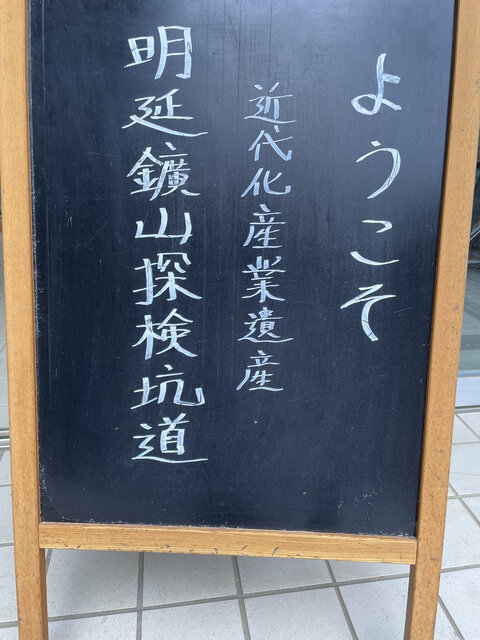 ようこそ
近代化産業遺産
明延鑛山探検坑道